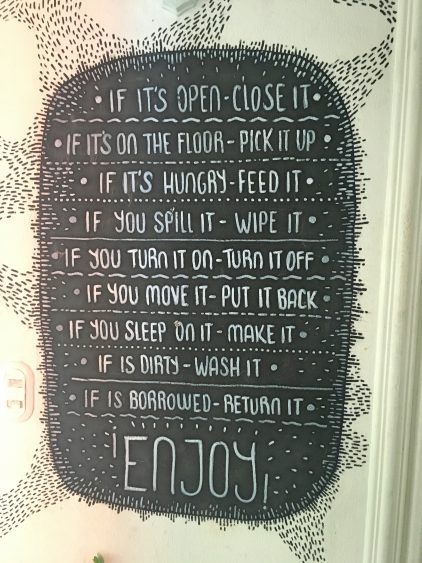 • IF IT'S OPEN-CLOSE IT •
• IF IT'S ON THE FLOOR - PICK IT UP •
IF IT'S HUNGRY-FEED IT •
• IF YOU SPILL IT - WIPE IT •
• IF YOU TURN IT ON-TURN IT OFF •
IF YOU MOVE IT- PUT IT BACK
• IF YOU SLEEP ON IT - MAKE IT •
IF IS DIRTY-WASH IT •
• IF IS BORROWED-RETURN IT •
¡ENJOY!